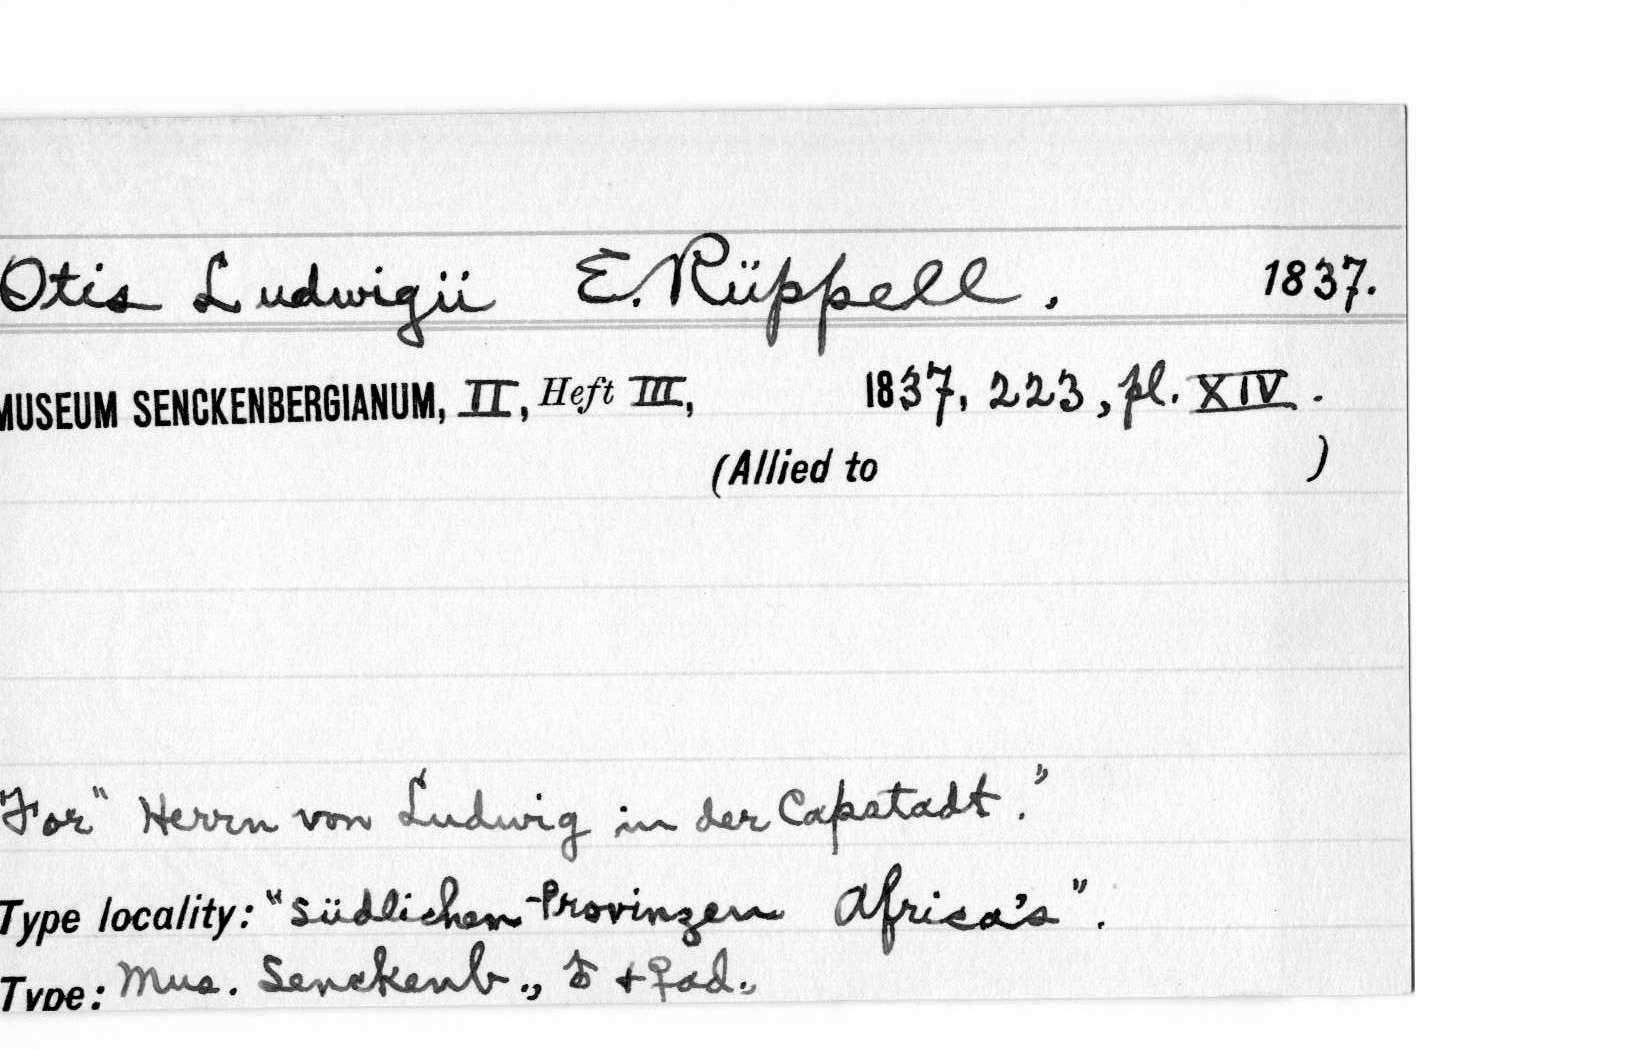 Otis Ludwigii E. Rüppell. 1837.
MUSEUM SENCKENBERGIANUM, II, Heft III, 1837, 223, pl. XIV.
(Allied to )
For "Herrn von Ludwig in der Capstadt."
Type locality: "südlichen Provinzen Africa's".
Type: Mus. Senckenb., ♂ + ♀ ad.